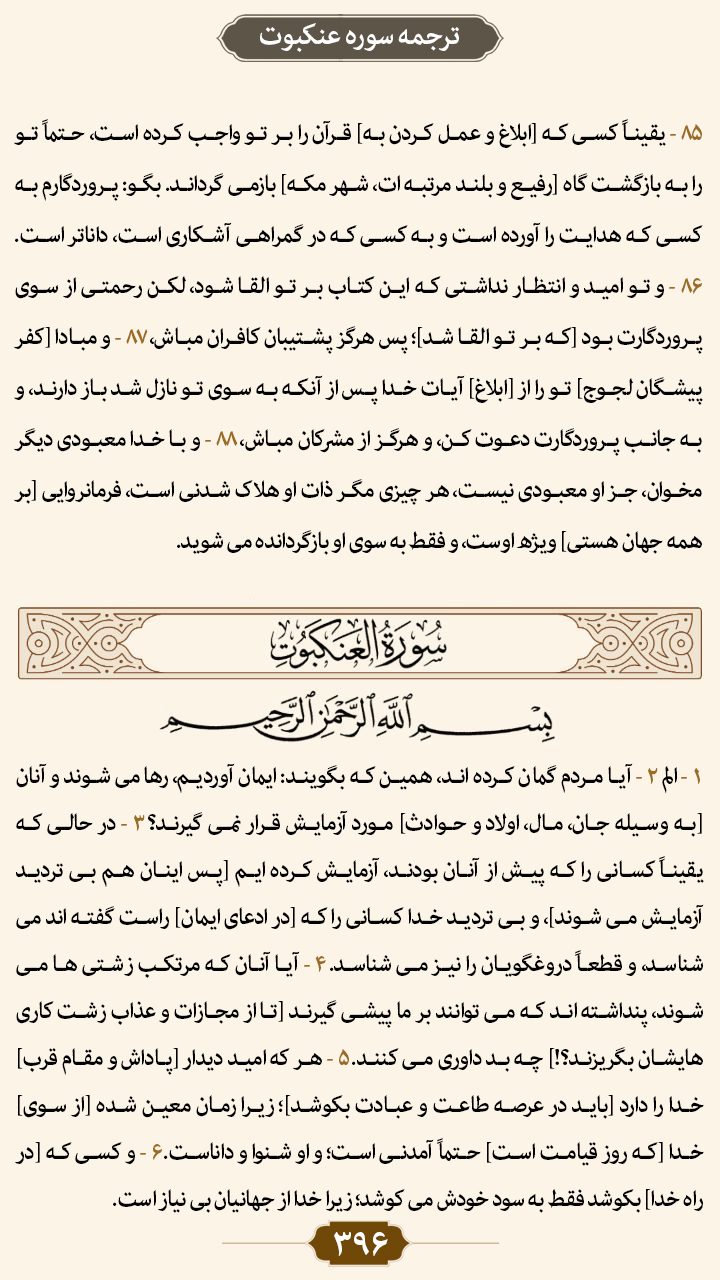 ترجمه سوره عنکبوت
۸۵ - یقیناً کسی که [ابلاغ و عمل کردن به] قرآن را بر تو واجب کرده است، حتماً تو
را به بازگشت گاه [رفیع و بلند مرتبه ات، شهر مکه] بازمی گرداند. بگو: پروردگارم به
کسی که هدایت را آورده است و به کسی که در گمراهی آشکاری است، داناتر است.
۸۶ - و تو امید و انتظار نداشتی که این کتاب بر تو القا شود، لکن رحمتی از سوی
پروردگارت بود [که بر تو القا شد]؛ پس هرگز پشتیبان کافران مباش، ۸۷ - و مبادا [کفر
پیشگان لجوج] تو را از [ابلاغ] آیات خدا پس از آنکه به سوی تو نازل شد باز دارند، و
به جانب پروردگارت دعوت کن، و هرگز از مشرکان مباش، ۸۸ - و با خدا معبودی دیگر
مخوان، جز او معبودی نیست، هر چیزی مگر ذات او هلاک شدنی است، فرمانروایی [بر
همه جهان هستی] ویژه اوست، و فقط به سوی او بازگردانده می شوید.
سُورَةُ العَنكَبُوتِ
بِسْمِ ٱللَّهِ ٱلرَّحْمَٰنِ ٱلرَّحِيمِ
۱ - الم ۲ - آیا مردم گمان کرده اند، همین که بگویند: ایمان آوردیم، رها می شوند و آنان
[به وسیله جان، مال، اولاد و حوادث] مورد آزمایش قرار نمی گیرند؟ ۳ - در حالی که
یقیناً کسانی را که پیش از آنان بودند، آزمایش کرده ایم [پس اینان هم بی تردید
آزمایش می شوند]، و بی تردید خدا کسانی را که [در ادعای ایمان] راست گفته اند می
شناسد، و قطعاً دروغگویان را نیز می شناسد. ۴ - آیا آنان که مرتکب زشتی ها می
شوند، پنداشته اند که می توانند بر ما پیشی گیرند [تا از مجازات و عذاب زشت کاری
هایشان بگریزند؟!] چه بد داوری می کنند. ۵ - هر که امید دیدار [پاداش و مقام قرب]
خدا را دارد [باید در عرصه طاعت و عبادت بکوشد]؛ زیرا زمان معین شده [از سوی]
خدا [که روز قیامت است] حتماً آمدنی است؛ و او شنوا و داناست. ۶ - و کسی که [در
راه خدا] بکوشد فقط به سود خودش می کوشد؛ زیرا خدا از جهانیان بی نیاز است.
۳۹۶